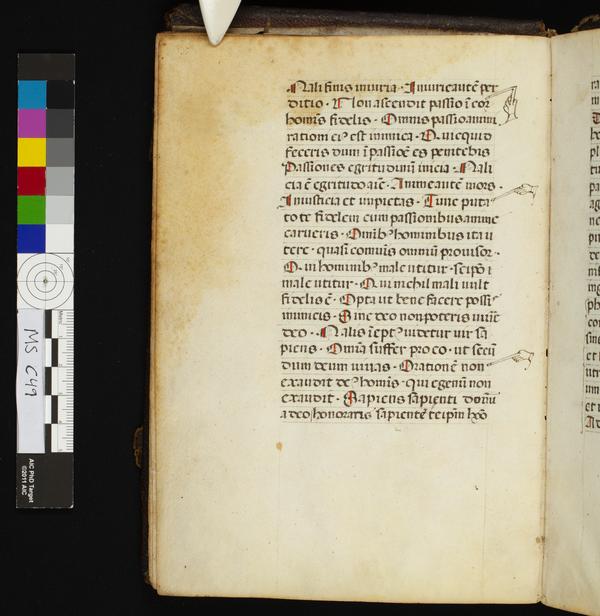 Mali finis iniuria · Iniurie autē per
ditio · Non ascendit passio ī cor
homīs fidelis · Omnis passio animi
rationi eiꝰ est inimica · Quicquid
feceris dum ī passiōe es penitebis
Passiones egritudinū inicia · Mali
cia ē egritudo aīe · Anime autē mors ·
Iniusticia et impietas · Tunc puta
to te fidelem cum passionibus anime
carueris · Omībꝰ hominibus ita u
tere · quasi comunis omniū prouisor ·
Qui hominibꝰ male utitur · seipō
male utitur · Qui nichil mali uult
fidelis ē · Opta ut bene facere possis
inimicis · Sine deo non poteris
deo · Malis īeptꝰ uidetur uir sa
piens · Omnia suffer pro eo · ut secū
dum deum uiuas · Orationē non
exaudit deꝰ homīs · qui egenū non
exaudit · Sapiens sapienti donū
a deo honoraris sapientē teipm
MS C49
AIC PhD Target
©2011 AIC